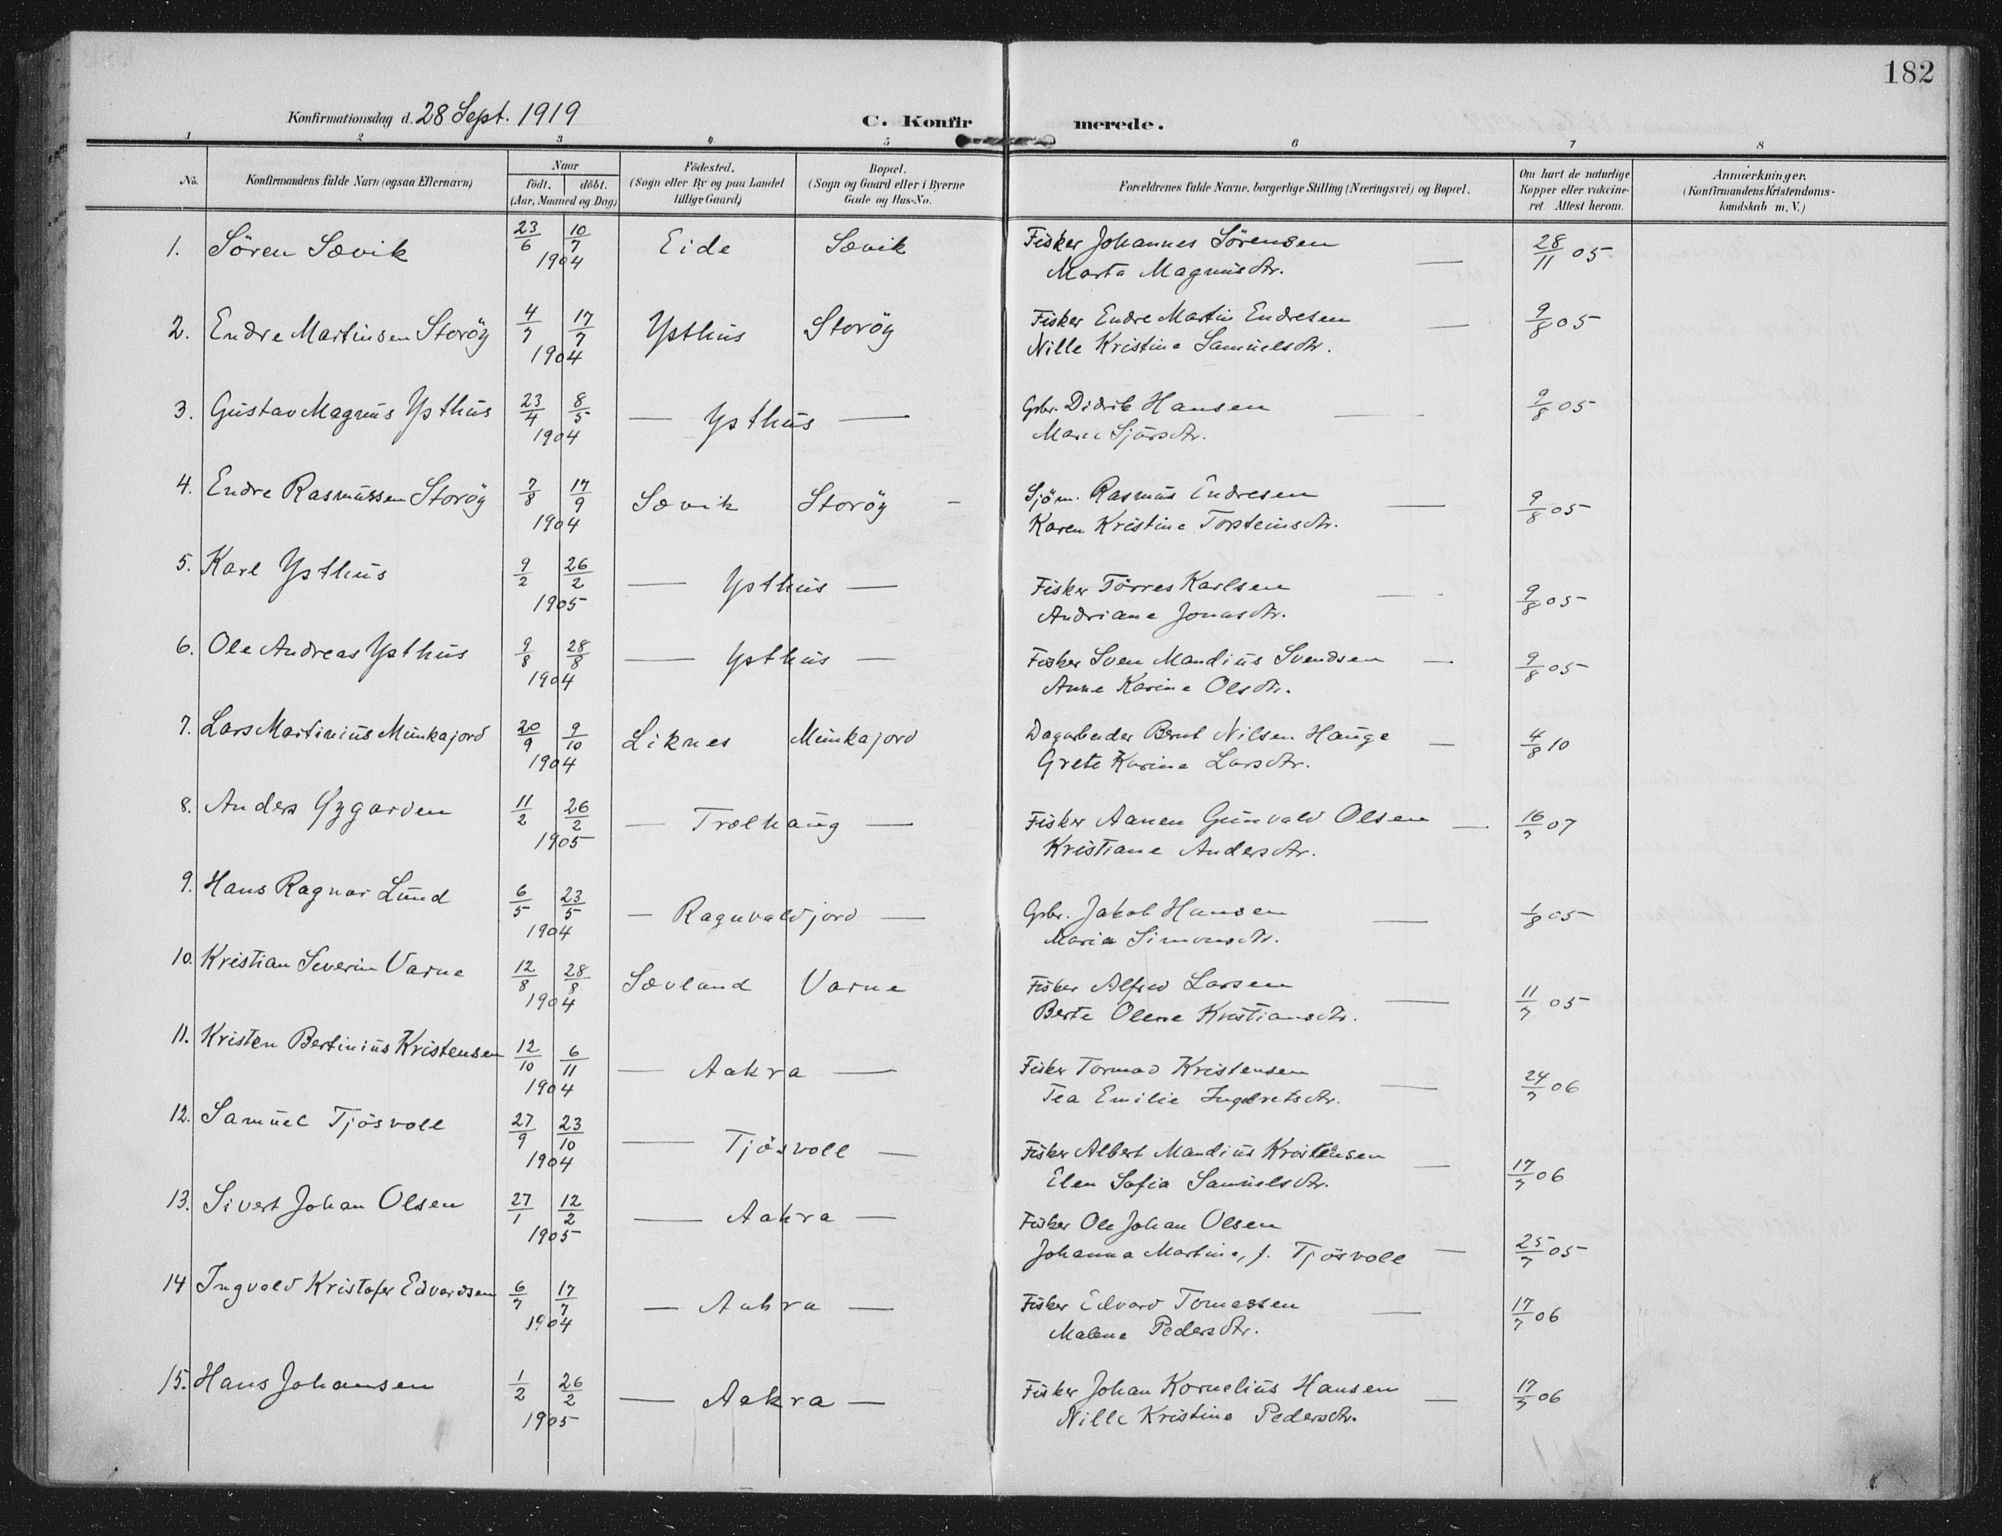 182
Konfirmationsdag d. 28 Sept. 1919
C. Konfirmerede.
1 2 3 4 5 6 7 8
No.
Konfirmandens fulde Navn (ogsaa Efternavn)
Naar
født. døbt.
(Aar, Maaned og Dag)
Födested.
(Sogn eller By og paa Landet
tillige Gaard)
Bopæl.
(Sogn og Gaard eller i Byerne
Gade og Hus-No.
Forældrenes fulde Navne, borgerlige Stilling (Næringsvei) og Bopæl.
Om havt de naturlige
Kopper eller vakcine-
ret Attest herom.
Anmærkninger.
(Konfirmandens Kristendoms-
kundskab m. V.)
1. Sören Sævik 23/6 10/7 Eide Sævik Fisker Johannes Sörensen — 28/11 05
1904 Marta Magnusdtr.
2. Endre Martinsen Storöy 4/7 17/7 Ysthus Storöy Fisker Endre Martin Endresen — 9/8 05
1904 Nille Kristine Samuelsdtr.
3. Gustav Magnus Ysthus 23/4 8/5 — Ysthus — Gbr. Didrik Hansen — 9/8 05
1904 Marie Sjursdtr.
4. Endre Rasmussen Storöy 7/8 17/9 Sævik Storöy - Sjöm. Rasmus Endresen — 9/8 05
1904 Karen Kristine Torsteinsdtr.
5. Karl Ysthus 9/2 26/2 — Ysthus — Fisker Törres Karlsen — 9/8 05
1905 Andriane Jonasdtr.
6. Ole Andreas Ysthus 9/8 28/8 — Ysthus — Fisker Sven Mandius Svendsen — 9/8 05
1904 Anne Karine Olsdtr.
7. Lars Martinius Munkajord 20/9 9/10 Liknes Munkajord Dagarbeider Bernt Nilsen Hauge — 4/8 10
1904 Grete Karine Larsdtr.
8. Anders Ygarden 11/2 26/2 — Trælhaug — Fisker Aanen Gunvald Olsen — 16/7 07
1905 Kristiane Andersdtr.
9. Hans Ragnar Lund 6/5 23/5 — Ragnvaldjord — Gbr. Jakob Hansen — 1/8 05
1904 Maria Simonsdtr.
10. Kristian Severin Varne 12/8 28/8 Sævland Varne Fisker Alfred Larsen — 11/7 05
1904 Berte Olene Kristiansdtr.
11. Kristen Bertinius Kristensen 12/10 6/11 — Aakra — Fisker Tormod Kristensen — 24/7 06
1904 Tea Emilie Ingebretsdtr.
12. Samuel Tjösvoll 27/9 23/10 — Tjösvoll — Fisker Albert Mandius Kristensen — 17/7 06
1904 Elen Sofia Samuelsdtr.
13. Sivert Johan Olsen 27/1 12/2 — Aakra — Fisker Ole Johan Olsen — 25/7 05
1905 Johanna Martine, f. Tjösvoll
14 Ingvald Kristofer Edvardsen 6/7 17/7 — Aakra — Fisker Edvard Tomassen — 17/7 06
1904 Malene Pedersdtr.
15. Hans Johansen 1/2 26/2 — Aakra — Fisker Johan Kornelius Hansen — 17/7 06
1905 Nille Kristine Pedersdtr.